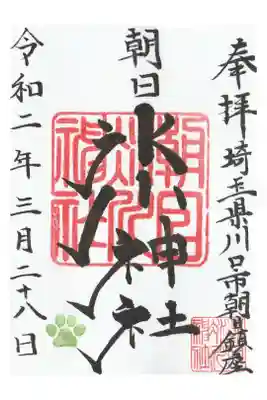 奉拝 埼玉県川口市朝日鎮座
朝日
氷川神社
朝日氷川神社
令和二年三月二十八日